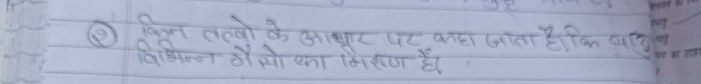 ② किन तत्वो के आधार पर कहा जाता है कि वायु
विभिन्न गैसो का मिश्रण है।